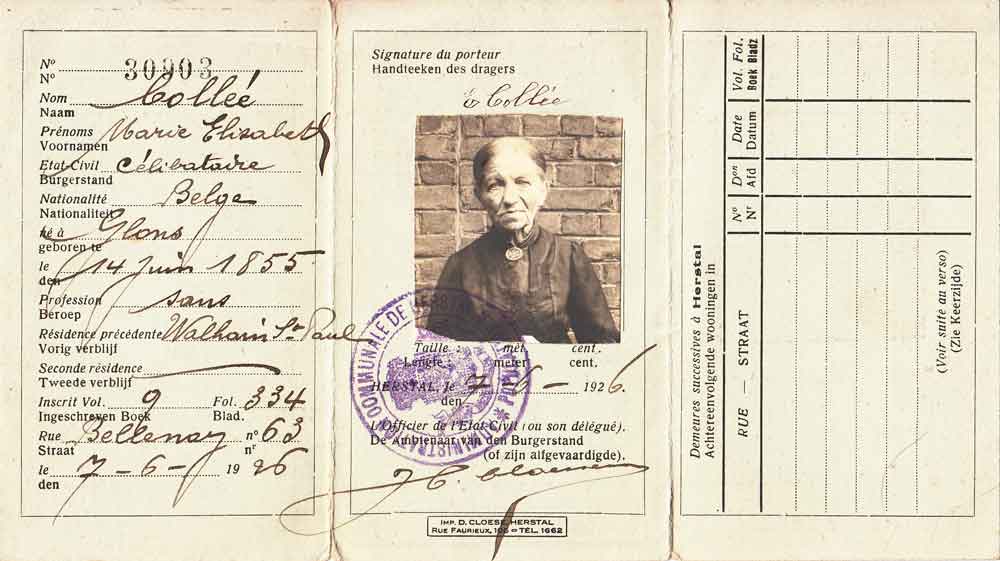 Nº 30903
Nº
Nom Collée
Naam
Prénoms Marie Elisabeth
Voornamen
Etat-Civil Célibataire
Burgerstand
Nationalité Belge
Nationaliteit
né à Glons
geboren te
le 14 Juin 1855
den
Profession sans
Beroep
Résidence précédente Walhain St Paul
Vorig verblijf
Seconde résidence —
Tweede verblijf
Inscrit Vol. 9 Fol. 334
Ingeschreven Boek Blad.
Rue Bellenay nº 63
Straat nr
le 7-6-1926
den
Signature du porteur
Handteeken des dragers
E Collée
Taille : mét. cent.
Lengte : meter cent.
HERSTAL, le 7-6-1926.
den
L'Officier de l'Etat-Civil (ou son délégué).
De Ambtenaar van den Burgerstand
(of zijn afgevaardigde).
ADMINISTRATION COMMUNALE DE HERSTAL
IMP. D. CLOESE, HERSTAL
RUE FAURIEUX, TÉL. 1662
Demeures successives à Herstal
Achtereenvolgende wooningen in
RUE — STRAAT
Nº Don Date Vol. Fol.
Nr Afd Datum Boek Bladz
(Voir suite au verso)
(Zie Keerzijde)